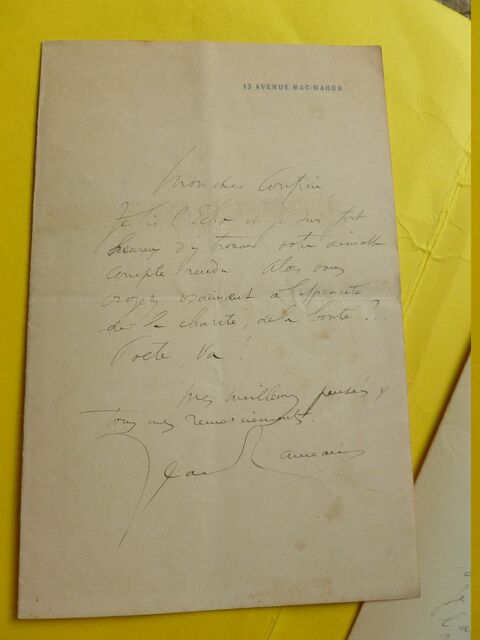 13 AVENUE MAC-MAHON
Mon cher
Je lis l'Echo et je suis fort
heureux d'y trouver votre aimable
compte-rendu. Alors vous
croyez vraiment à l'efficacité
de la charité, de la bonté ??
Poète, va !
Mes meilleures pensées &
tous mes remerciements.
Jean Rameau